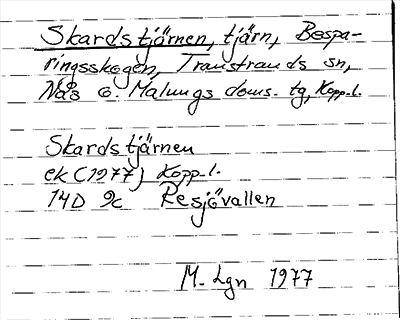 Skardstjärnen, tjärn, Bespa-
ringsskogen, Transtrands sn,
Nås o. Malungs doms. tg, Kopp.l.
Skardstjärnen
ek (1977) Kopp.l.
14D 9c Resjövallen
M. Lgn 1977